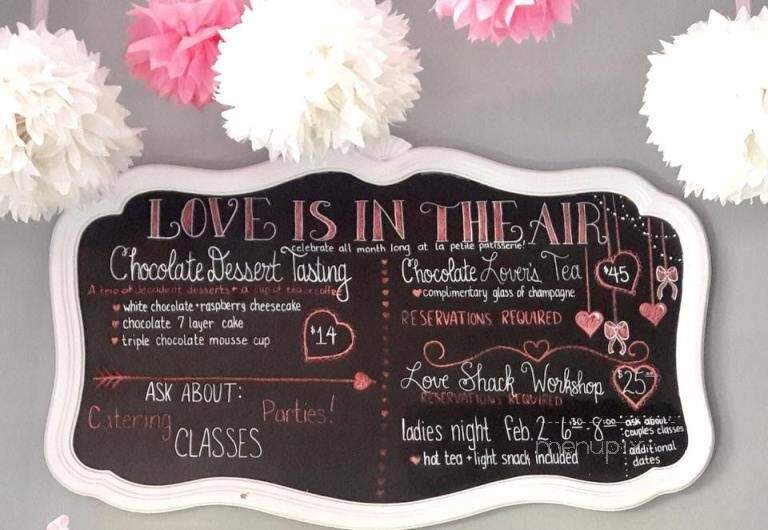 LOVE IS IN THE AIR
celebrate all month long at la petite patisserie!
Chocolate Dessert Tasting
A trio of decadent desserts + a cup of tea or coffee
white chocolate + raspberry cheesecake
chocolate 7 layer cake
triple chocolate mousse cup
$14
ASK ABOUT:
Catering
Parties!
CLASSES
Chocolate Lover's Tea
$45
complimentary glass of champagne
RESERVATIONS REQUIRED
Love Shack Workshop
$25
RESERVATIONS REQUIRED
ladies night Feb. 2 6:30-8:00
hot tea + light snack included
ask about
couples classes
additional
dates
menupix